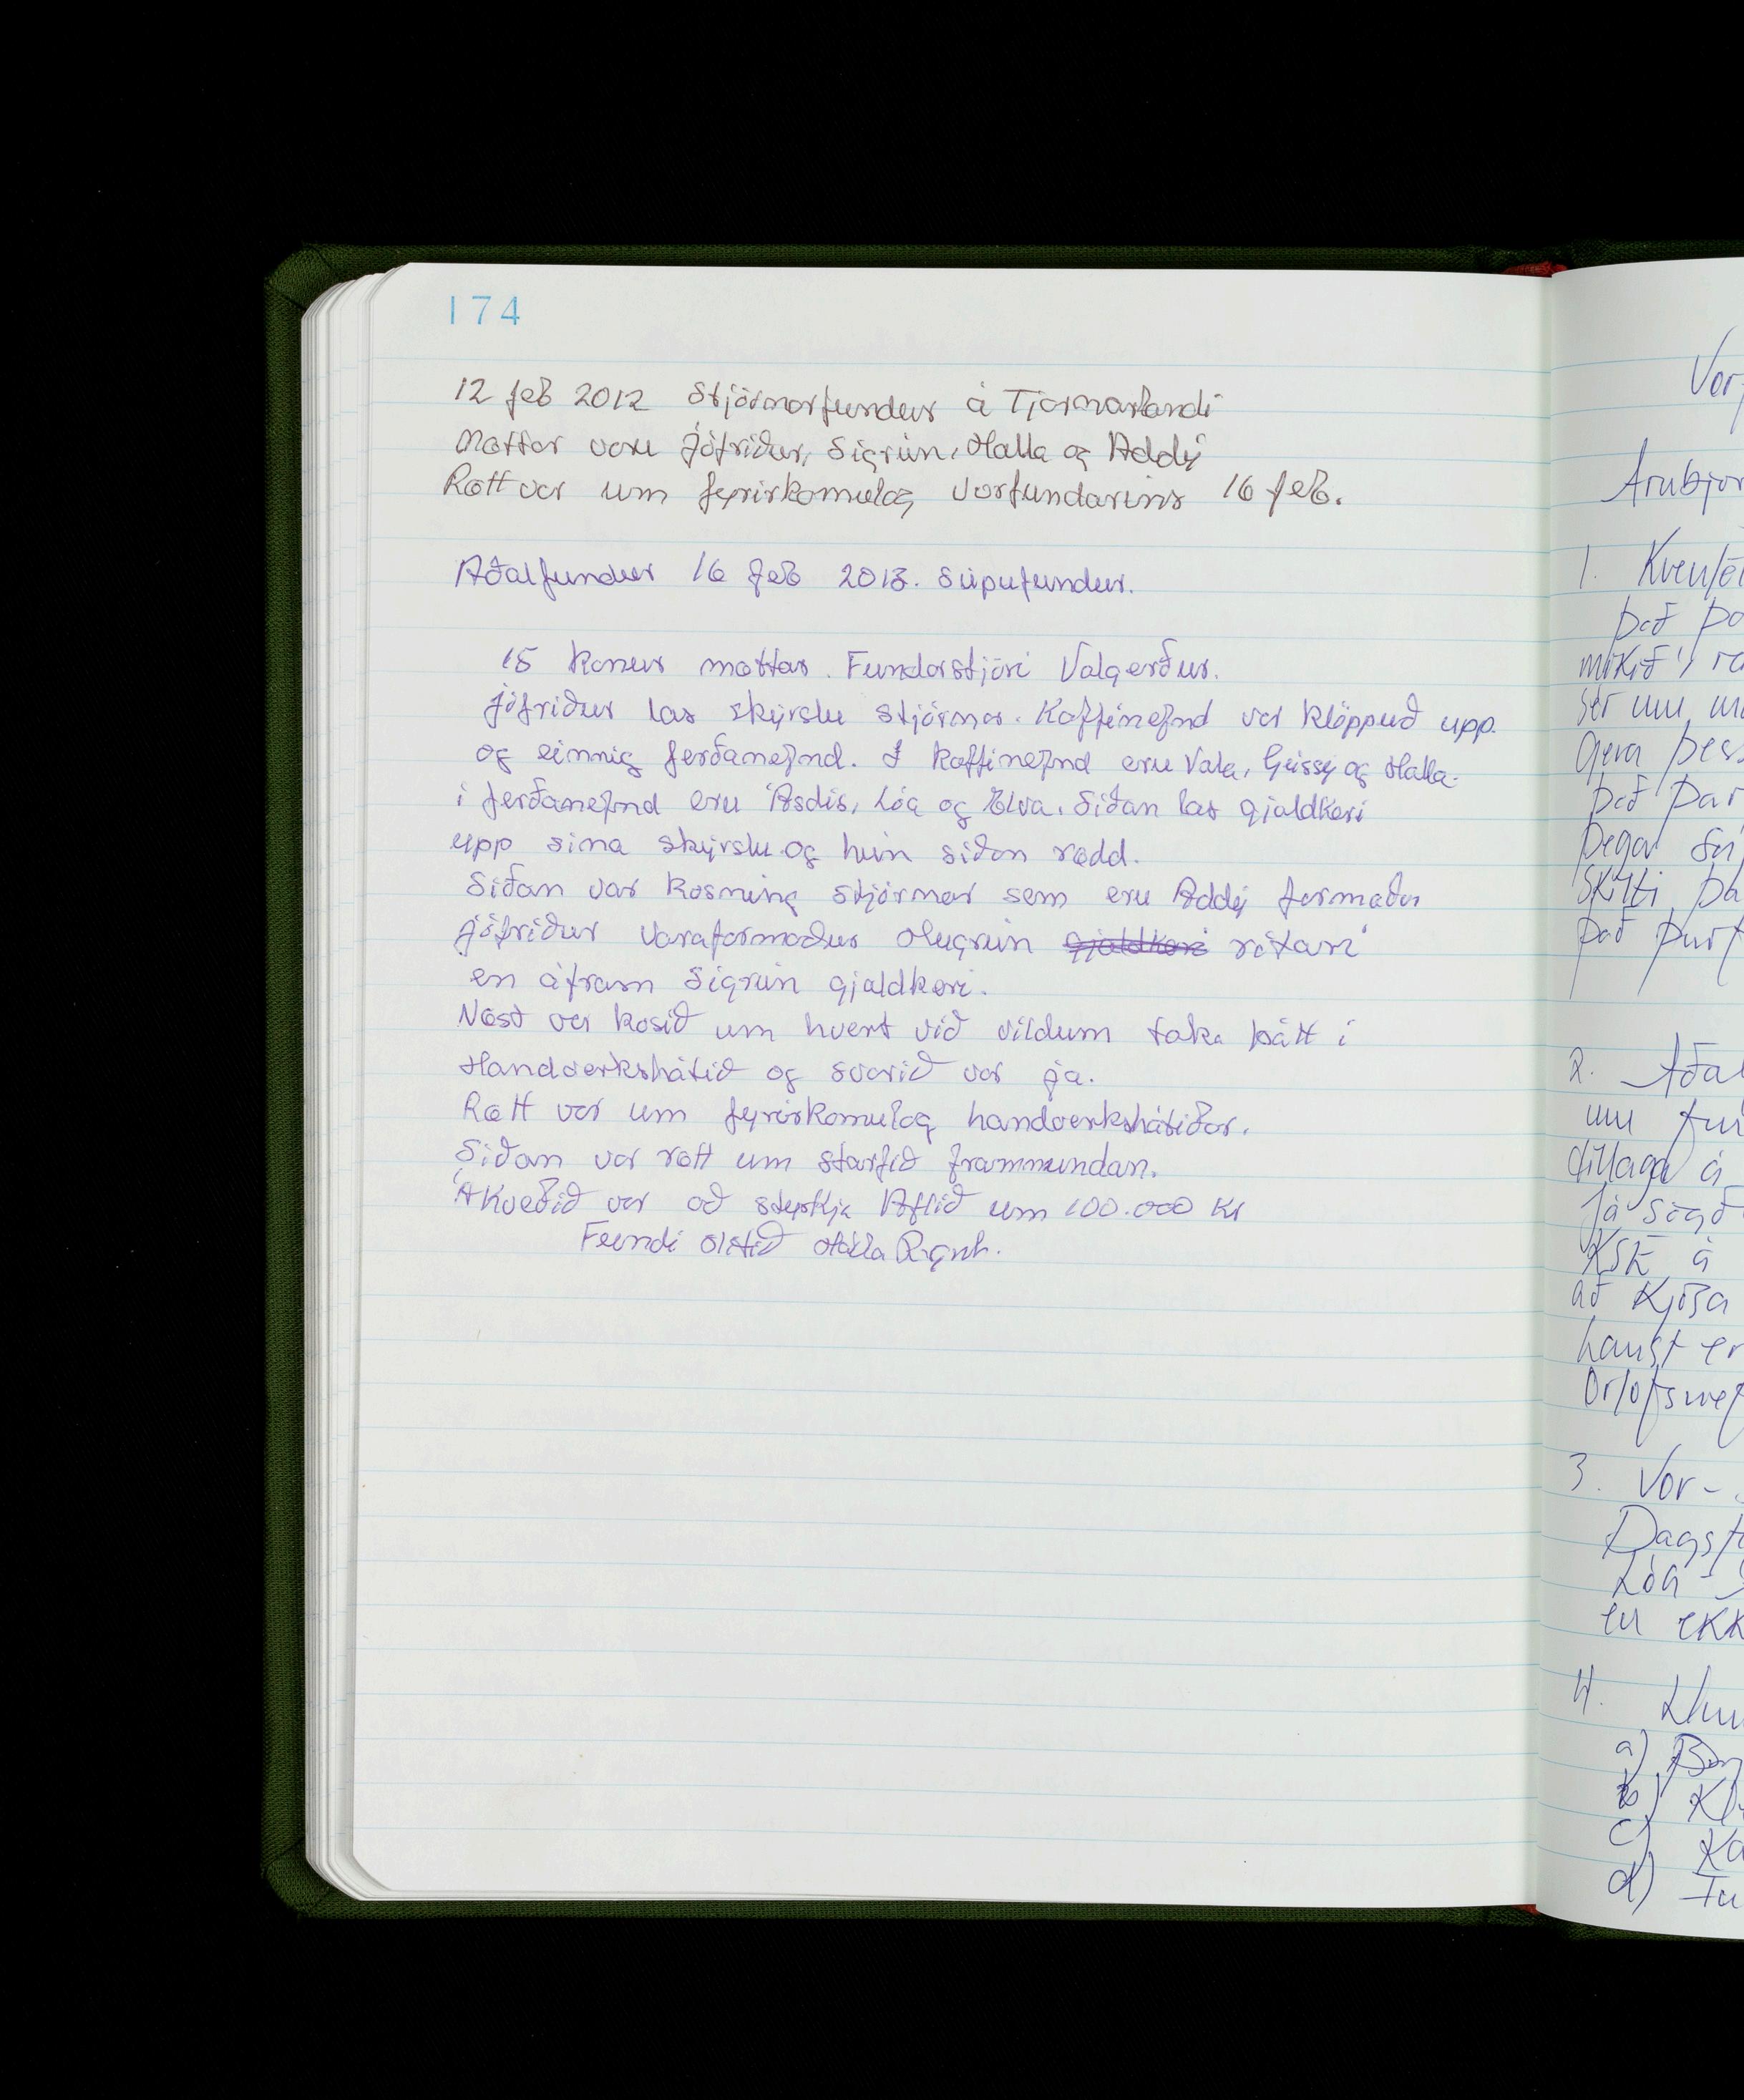 174
12 feb 2012 Stjórnarfundur á Tjarnarlandi
Mættar voru Jófríður, Sigrún, Halla og Addý
Rætt var um fyrirkomulag vorfundarins 16 feb.
Aðalfundur 16 feb 2013. Súpufundur.
15 konur mættar. Fundarstjóri Valgerður.
Jófríður las skýrslu stjórnar. Kaffinefnd var klöppuð upp.
og einnig ferðanefnd. Í kaffinefnd eru Vala, Geissý og Halla.
í ferðanefnd eru Ásdís, Lóa og Elva. Síðan las gjaldkeri
upp sína skýrslu og hún síðan rædd.
Síðan var kosning stjórnar sem eru Addý formaður
Jófríður varaformaður Hugrún gjaldkeri ritari
en áfram Sigrún gjaldkeri.
Næst var kosið um hvert við vildum taka þátt í
Handverkshátíð og svarið var já.
Rætt var um fyrirkomulag handverkshátíðar.
Síðan var rætt um starfið frammundan.
Ákveðið var að styrkja Aflið um 100.000 Kr
Fundi slitið Halla Ragnh.
Vor
Arnbjör
1. Kvenfé
það þa
mikið, ra
sér um
gera þes
það þar
þegar
skilti þa
það þurf
2. Aðal
um fun
tillaga á
Já sögð
KSE á
að kjósa
haust er
Orlofsnef
3. Vor-
Dagsf
Lóa
en ekk
4.
a)
b) Kl
c) Ka
d)